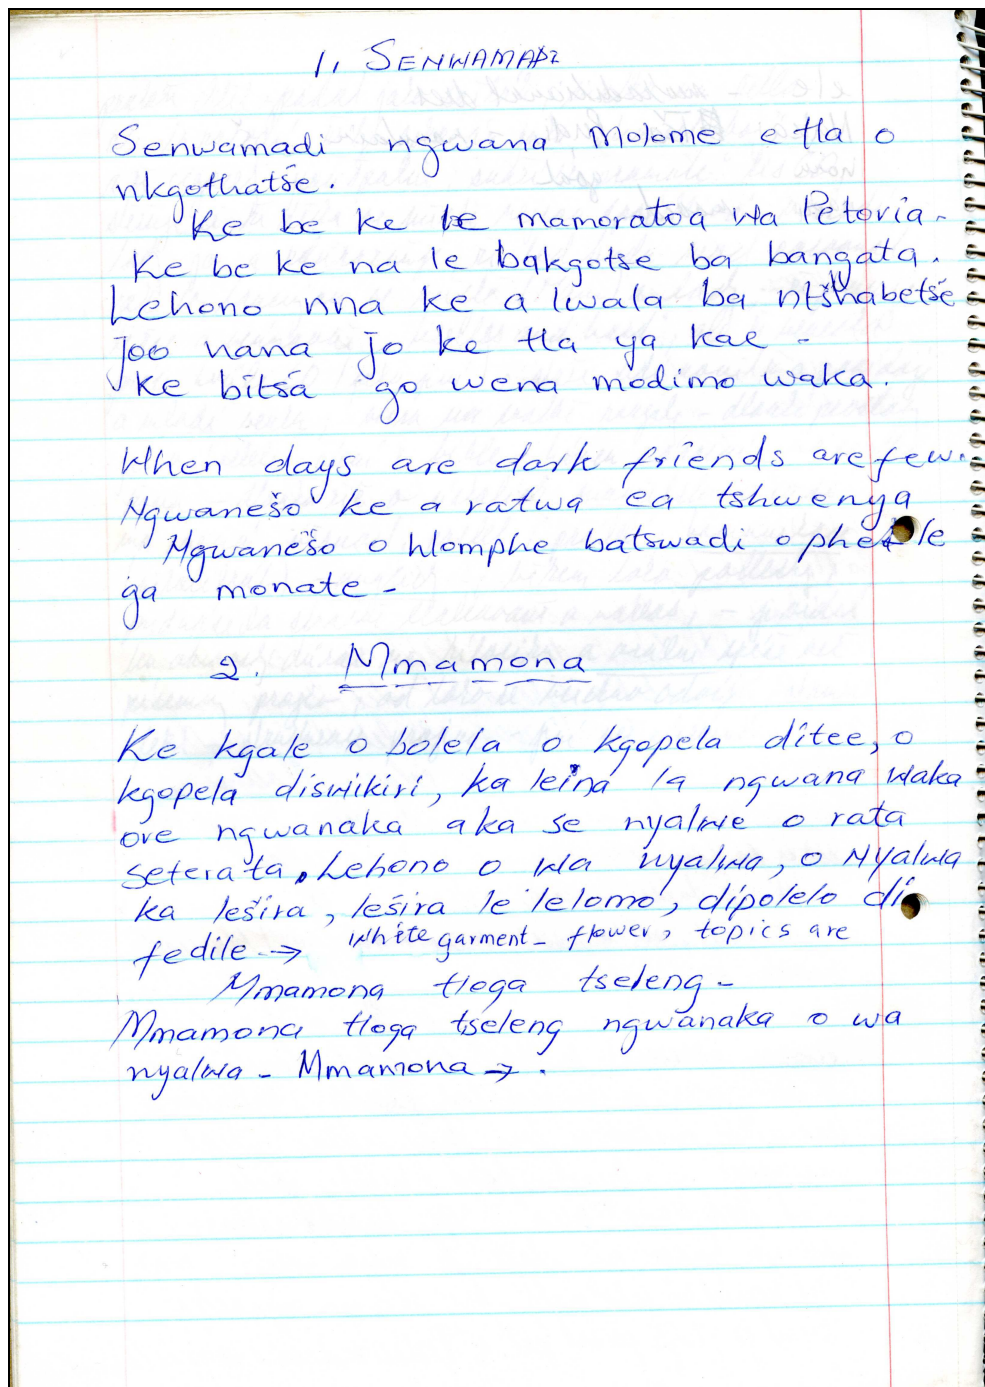 1. SENWAMADI
Senwamadi ngwana Molome e tla o
nkgothatše.
Ke be ke le mamoratoa wa Petoria-
Ke be ke na le bakgotse ba bangata.
Lehono nna ke a lwala ba ntšhabetše
Joo nana jo ke tla ya kae -
Ke bitša go wena modimo waka.
When days are dark friends are few.
Ngwanešo ke a ratwa ea tshwenya
Ngwanešo o hlomphe batswadi o phele
ga monate-
2. Mmamona
Ke kgale o bolela o kgopela ditee, o
kgopela diswikiri, ka leina la ngwana waka
ore ngwanaka aka se nyalwe o rata
seterata, Lehono o wa nyalwa, o Nyalwa
ka lešira, lešira le lelomo, dipolelo di
fedile → White garment- flower, topics are
Mmamona tloga tseleng-
Mmamona tloga tseleng ngwanaka o wa
nyalwa- Mmamona → .